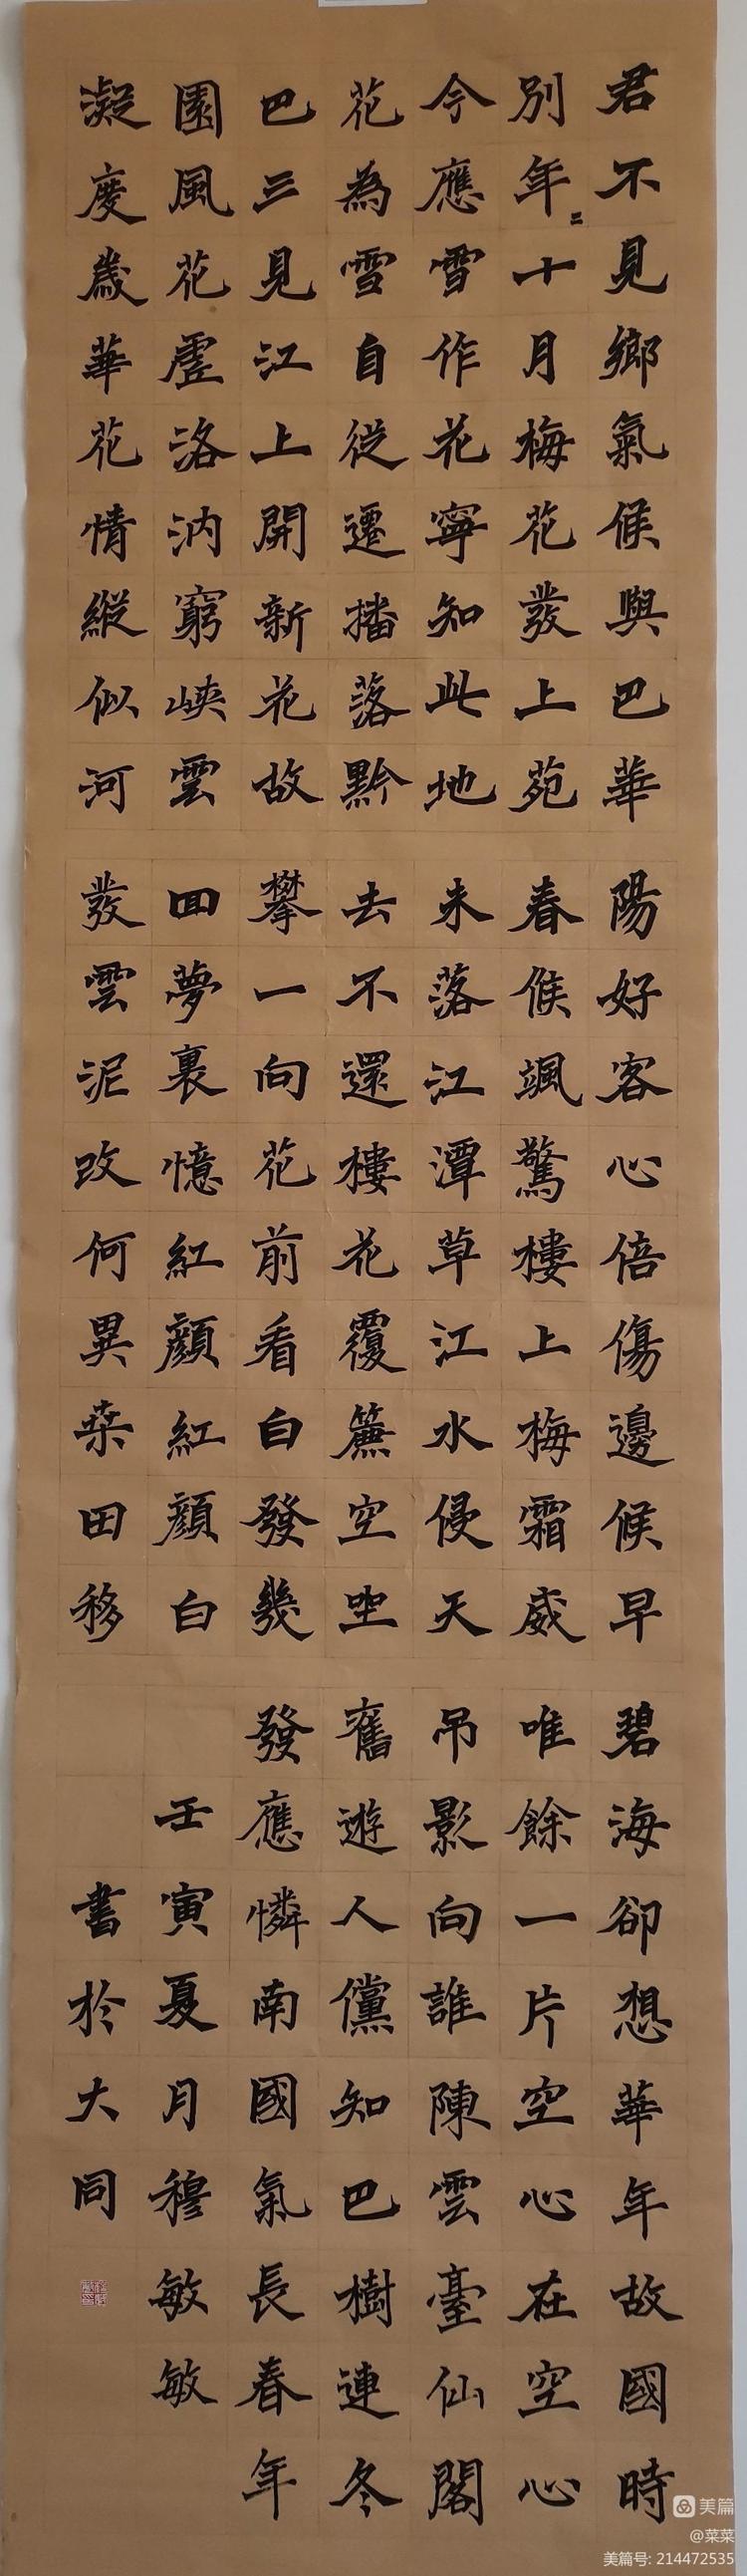 君不見鄉氣候與巴華
別年二十月梅花發上苑
今應雪作花寧知此地
花為雪自從遷播落黔
巴三見江上開新花故
園風花虛洛汭窮峽雲
凝度歲華花情縱似河
陽好客心倍傷邊候早
春候颯驚樓上梅霜威
未落江潭草江水侵天
去不還樓花覆簾空坐
攀一向花前看白發幾
回夢裏憶紅顏紅顏白
發雲泥改何異桑田移
碧海卻想華年故國時
唯餘一片空心在空心
吊影向誰陳雲臺仙閣
舊遊人儻知巴樹連冬
發應憐南國氣長春年
壬寅夏月穆敏敏
書於大同
美篇
@菜菜
美篇号: 214472535